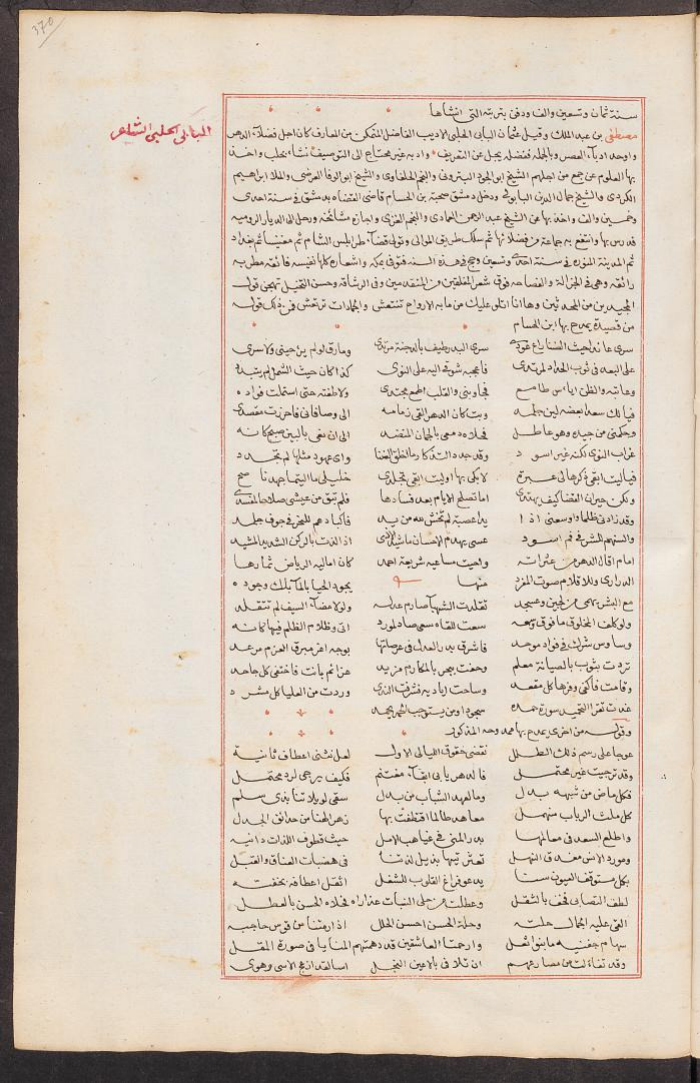 370
البابي الحلبي الشاعر
سنة ثمان وتسعين والف ودفن بتربته التي انشاها
مصطفى بن عبد الملك وقيل عثمان البابي الحلبي الاديب الفاضل المتمكن من المعارف كان اجل فضلاء الدهر
واوحد ادباء العصر وبالجملة ففضله يجل عن التعريف وادبه غير محتاج الى التوصيف نشاء بحلب واخذ
بها العلوم عن جمع من اجلهم الشيخ ابو الجود البتروني والنجم الحلفاوي والشيخ ابو الوفا العرضي والملا ابراهيم
الكردي والشيخ جمال الدين البابولي ودخل دمشق صحبة بن الحسام قاضي القضاه بدمشق في سنة احدى
وخمسين والف واخذ بها عن الشيخ عبد الرحمن العمادي والنجم الغزي واجازه مشائخه ورحل الى الديار الروميه
قدرس بها وانتفع به جماعة من فضلائها ثم سلك طريق الموالي وتولى قضاء طرابلس الشام ثم مغنيسا ثم بغداد
ثم المدينة المنوره في سنة احدى وتسعين وحج في هذه السنه فتوفي بمكه واشعاره كلها نفيسه فائقه مطربه
رائقه وهي في الجزالة والفصاحه فوق شعر المفلقين من المتقدمين وفي الرشاقة وحسن التخيل تهجن قول
المجيدين من المحدثين وها انا اتلو عليك من ما به الارواح تنتعش والجمادات ترتعش فمن ذلك قوله
من قصيدة يمدح بها ابن الحسام
سرى عائدا حيث الضنا راع عودي سرى البدر طيف بالدجنة مرتدي ومارق لولم يزحيني ولا سرى
على البعد في ثوب الحداد لمرتدي فاعجبه شوقي اليه على النوى كذا كان حيث الشمل لم يتبدد
وعاتبته والظن اياس طامع فجاوبني والقلب اطمع مجتدي ولاطفته حتى استملت فواده
فيالك سعدا بعضه لين جلمد وبت كان الدهر القى زمامه الي وصافاني فاحرزت مقصدي
وحكمني من جيده وهو عاطل فحلاه دمعي بالجمان المنضد الى ان نعى بالبين صبح كانه
غراب النوى لكنه غير اسود وقد جدد التذكار ما اخلق العنا واي عهود مثلها لم تجدد
فياليت ابقى ذكرها لي عبرة لابكي بها اوليت ابقى تجلدي خليلي ما اليتما جهد ناصح
ولكن حيران القضا كيف يهتدي اما تصلح الايام بعد فسادها فلم تبق من عيشي صلاحا لمفسد
وقد زاد في ظلما واوسعني اذا يدا عصبة لم تخش لله من يد فاكباد هم للبخر في جوف جلمد
والسنهم للشر في فم اسود عسى يهدم الاحسان ما شيد الاذى اذ الذت بالركن الشديد المشيد
امام اقال الدهر من عثراته واحيت مساعيه شريعة احمد كان اماليه الرياض ثمارها
الدراري وللاقلام صوت المغرد منها يجود الحيا بالماء لكن وجوده
مع البشر يهمي من لجين وعسجد تقلدت الشهباء صارم عدله ولولا مضاء السيف لم تتقلد
ولو كلف المخلوق ما فوق وسعه سعت للقاه سعي صاد لمورد اتى وظلام الظلم فيها كانه
وساوس شرك في فواد موحد فاشرق بدر العدل في عرصاتها بوجه اغر مبرق العزم مرعد
تردت بثوب بالصيانة معلم وحفت ببحر بالمكارم مزبد عزائم بانت فاختفى كل جاحد
وقامت فاكفى وفرها كل مقعد وساحت اياديه فشرقت الندى وردت من العليا كل مشرد
غدت تقرا التحميد سورة حمده سجود او من يستوجب الحمد يحمد
وقوله من اخرى يمدح بها محمدوحه المذكور
عوجا على رسم ذلك الطلل نقضي حقوق الليالي الاول لعل تثنى اعطاف ثانية
وقد ترجيت غير محتمل فالدهر يابى ابقاء مغتنم فكيف يرجى لرد محتمل
فكل ماض من شبهه بدل وما لعهد الشباب من بدل سقى لويلاتنا بذي سلم
كل ملث الرباب منهمل معاهد طالما اقتطفت بها زهر الهنا من حدائق الجدل
واطلع السعد في معالمها بدر المنى في غياهب الامل حيث قطوف اللذات دانيه
ومورد الانس مغدق النهل تعثر تيها بذيل لذتنا في هضبات العناق والقبل
بكل مستوقف العيون سنا يدعو فراغ القلوب للشغل اثقل اعطافه بخفته
لطف التصابي فخف بالثقل وعطلت من حلى النبات عذاراه فحلاه الحسن بالعطل
القى عليه الجمال حلته وحلة الحسن احسن الحلل اذا رمتنا من قوس حاجبه
سهام جفنيه ما بنو اثعل وارحمتا العاشقين قد دهتهم المنايا في صورة المقل
وقد تفاءلت من مصارعهم ان تلافى بالاعين النجل اسالقد ازعج الاسى وهوى